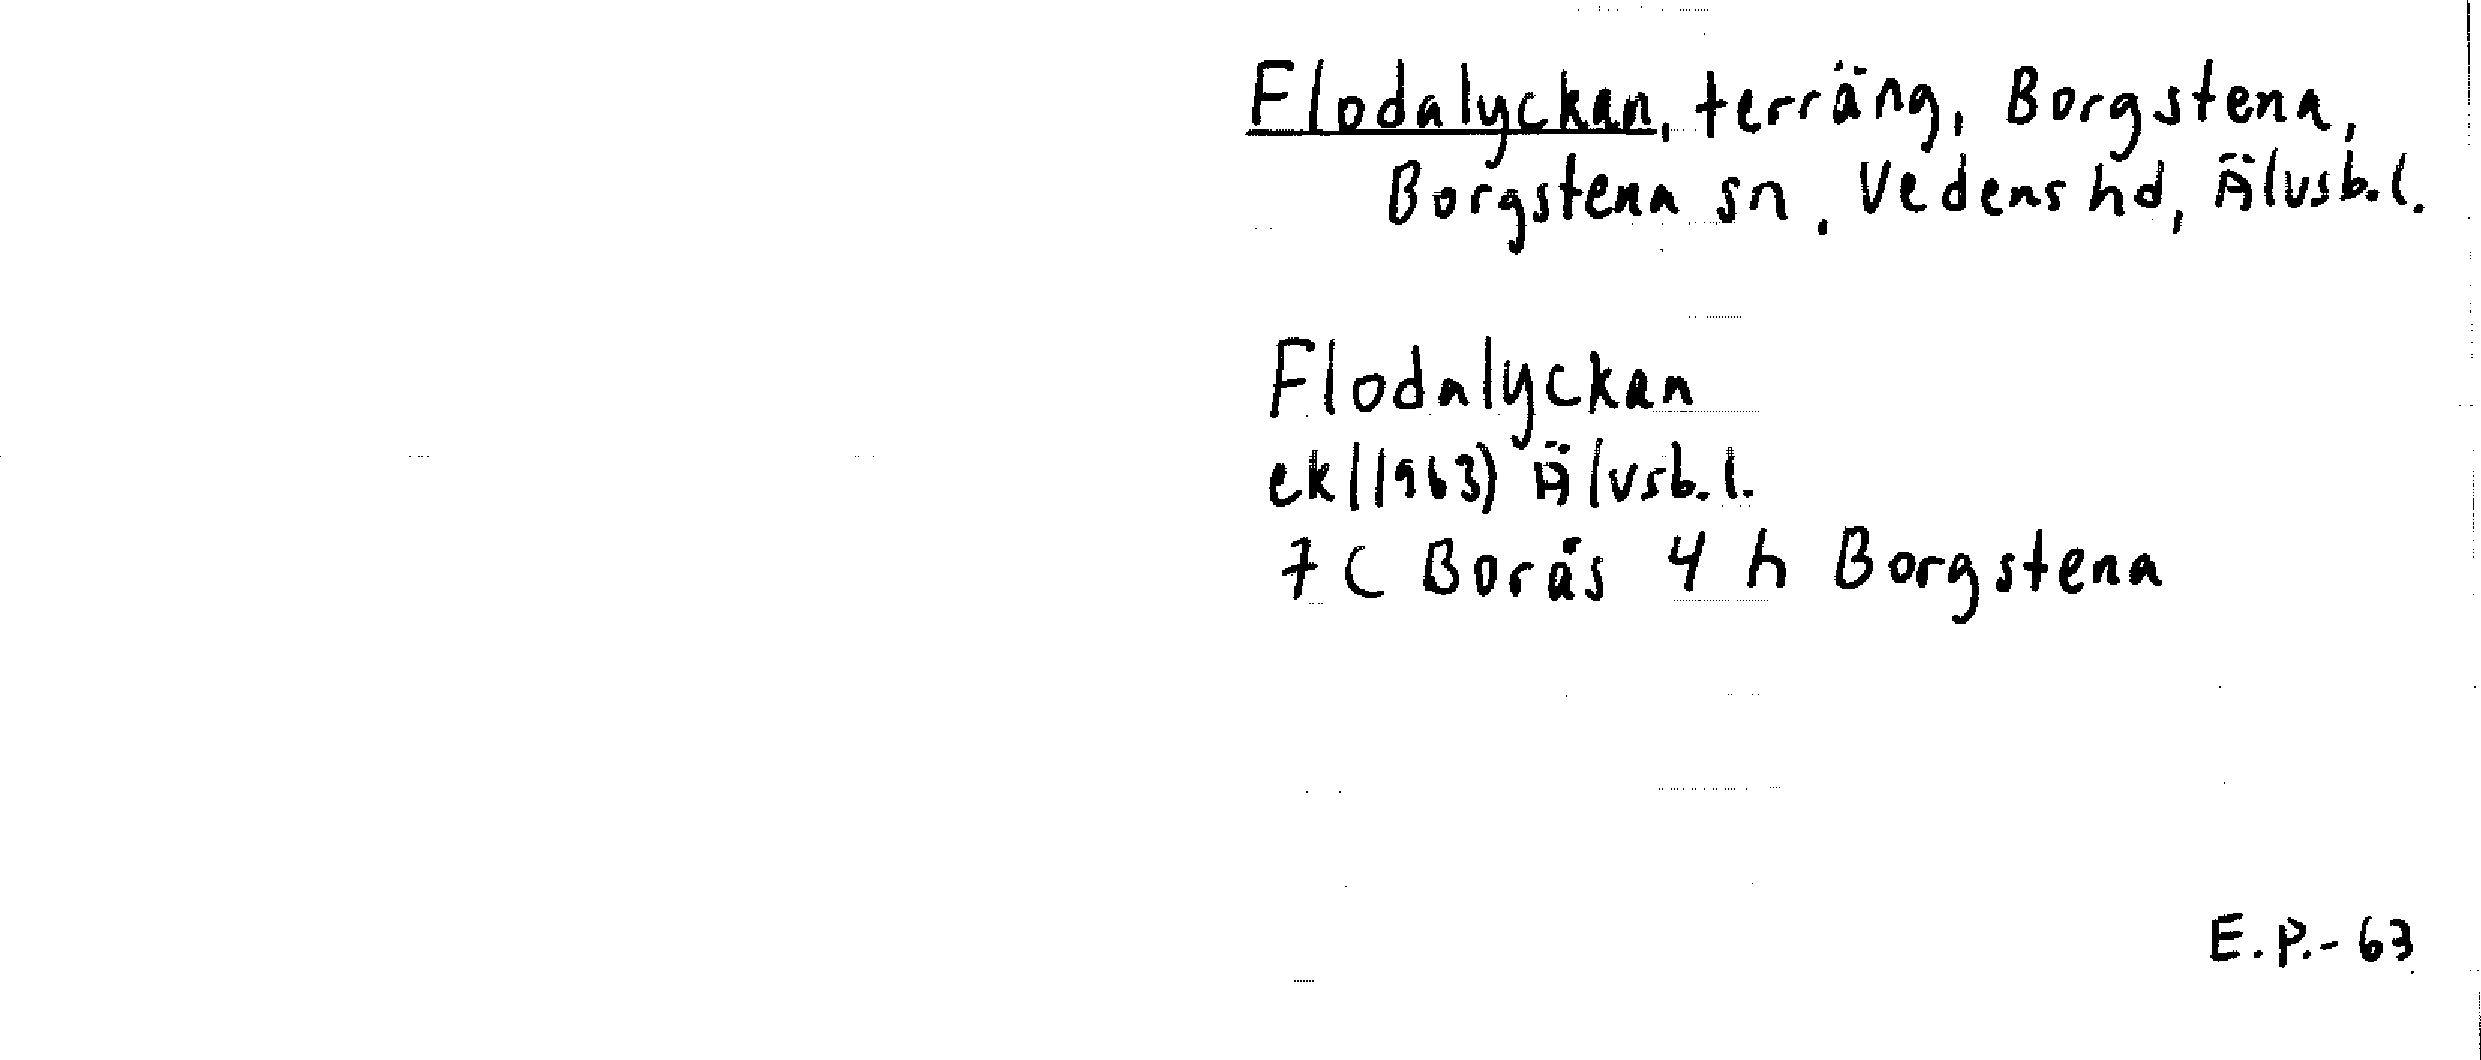 Flodalyckan, terräng, Borgstena,
Borgstena sn. Vedens hd, Älvsb.l.
Flodalyckan
ek(1963) Älvsb.l.
7 C Borås 4 h Borgstena
E.P.-63